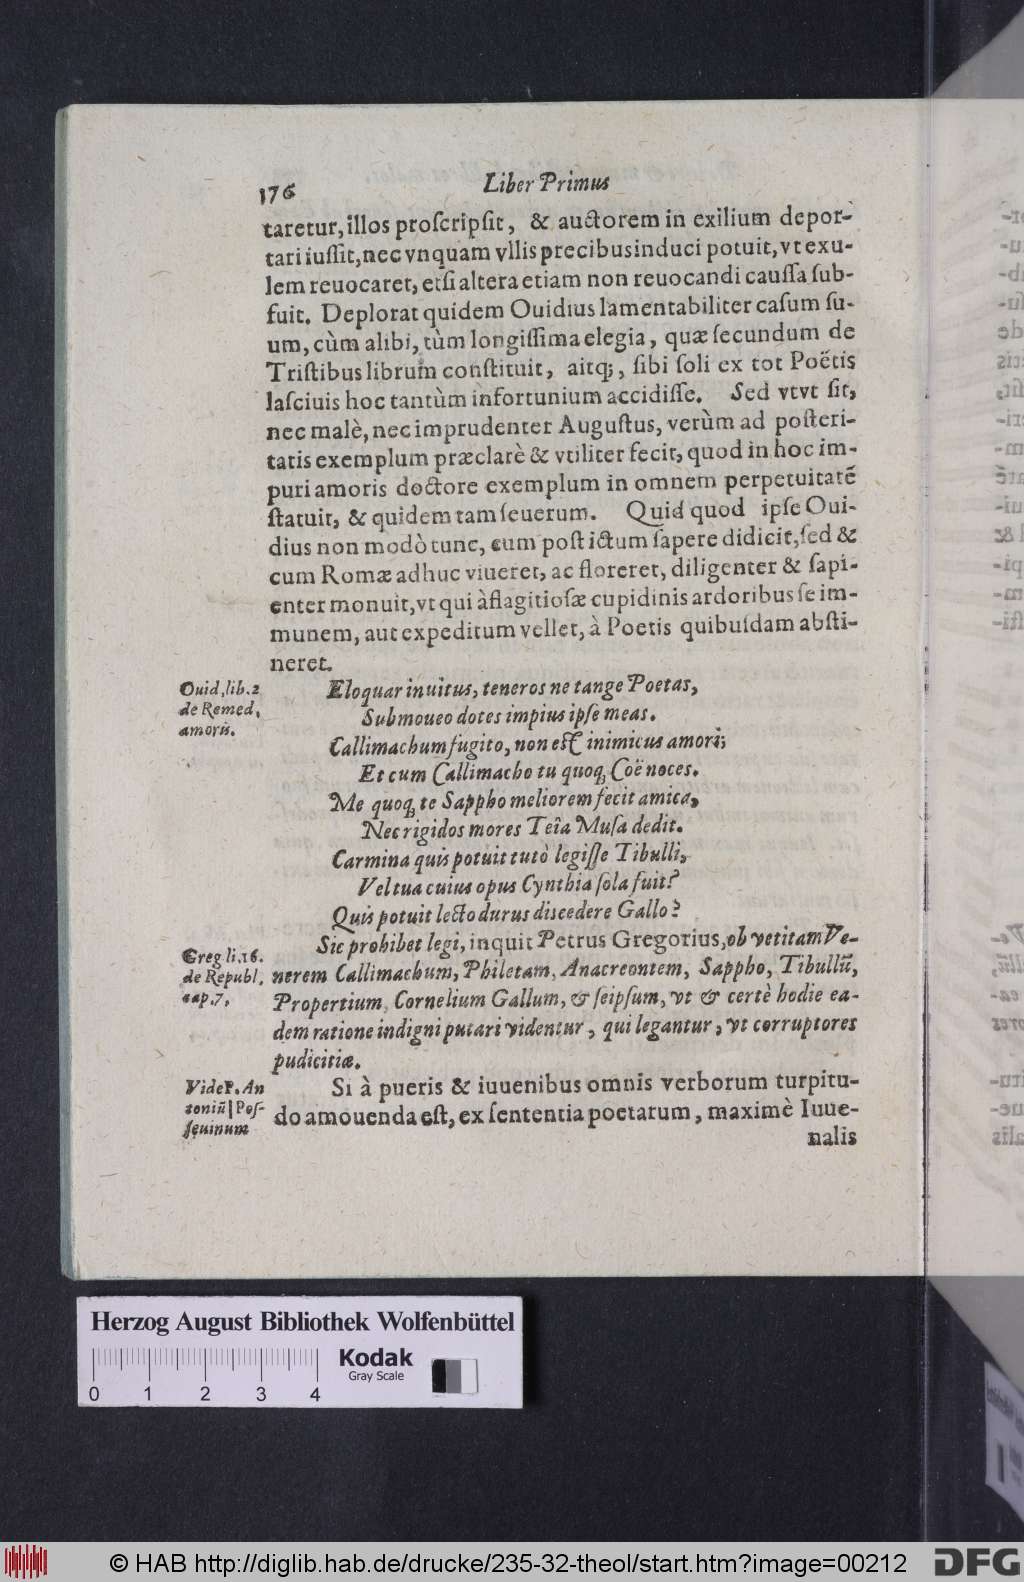 176 Liber Primus
taretur, illos proſcripſit, & auctorem in exilium depor-
tari iuſſit, nec vnquam vllis precibus induci potuit, vt exu-
lem reuocaret, etſi altera etiam non reuocandi cauſſa ſub-
fuit. Deplorat quidem Ouidius lamentabiliter caſum ſu-
um, cùm alibi, tùm longiſſima elegia, quæ ſecundum de
Triſtibus librum conſtituit, aitq;, ſibi ſoli ex tot Poëtis
laſciuis hoc tantùm infortunium accidiſſe. Sed vtvt ſit,
nec malè, nec imprudenter Auguſtus, verùm ad poſteri-
tatis exemplum præclarè & vtiliter fecit, quod in hoc im-
puri amoris doctore exemplum in omnem perpetuitatē
ſtatuit, & quidem tam ſeuerum. Quid quod ipſe Oui-
dius non modò tunc, cum poſt ictum ſapere didicit, ſed &
cum Romæ adhuc viueret, ac floreret, diligenter & ſapi-
enter monuit, vt qui à flagitioſæ cupidinis ardoribus ſe im-
munem, aut expeditum vellet, à Poetis quibuſdam abſti-
neret.
Ouid, lib. 2
de Remed,
amoris.
Eloquar inuitus, teneros ne tange Poetas,
Submoueo dotes impius ipſe meas.
Callimachum fugito, non eſt inimicus amori;
Et cum Callimacho tu quoq; Coë noces.
Me quoq; te Sappho meliorem fecit amica,
Nec rigidos mores Teîa Muſa dedit.
Carmina quis potuit tutò legiſſe Tibulli,
Vel tua cuius opus Cynthia ſola fuit?
Quis potuit lecto durus discedere Gallo?
Greg li. 16.
de Republ,
cap. 7,
Sic prohibet legi, inquit Petrus Gregorius, ob vetitam Ve-
nerem Callimachum, Philetam, Anacreontem, Sappho, Tibullū,
Propertium, Cornelium Gallum, & ſeipſum, vt & certè hodie ea-
dem ratione indigni putari videntur, qui legantur, vt corruptores
pudicitiæ.
Vide P. An
toniū Poſ-
ſeuinum
Si à pueris & iuuenibus omnis verborum turpitu-
do amouenda eſt, ex ſententia poetarum, maximè Iuue-
nalis
Herzog August Bibliothek Wolfenbüttel
Kodak
Gray Scale
0 1 2 3 4
© HAB http://diglib.hab.de/drucke/235-32-theol/start.htm?image=00212
DFG